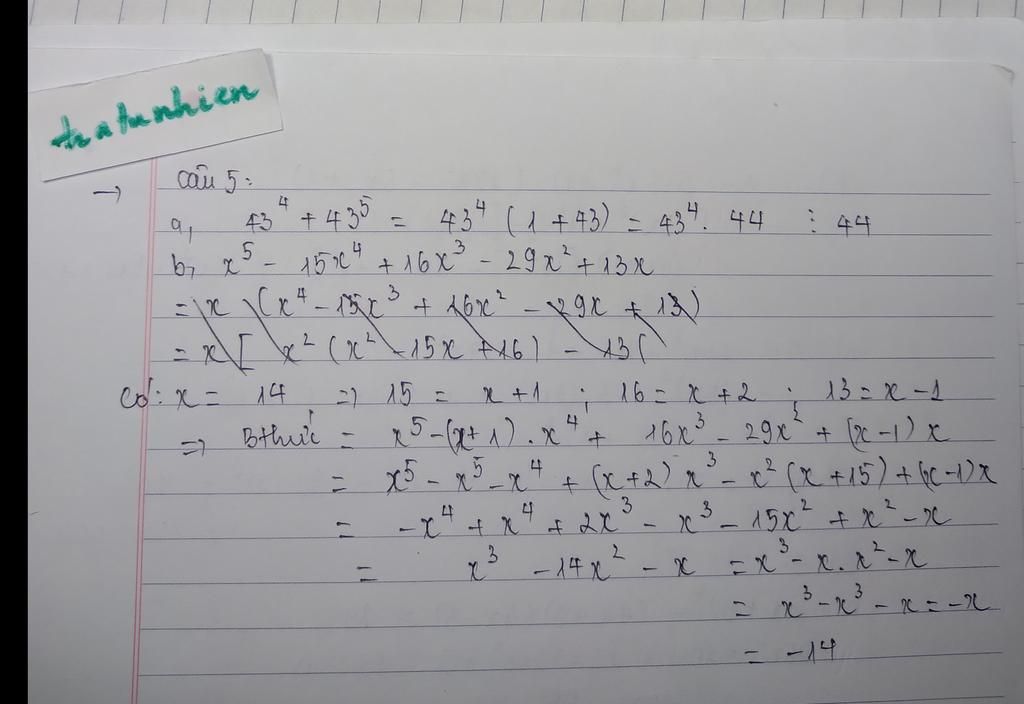 tratunhien
→ Câu 5:
a, 43⁴ + 43⁵ = 43⁴ (1 + 43) = 43⁴. 44 ⋮ 44
b, x⁵ - 15x⁴ + 16x³ - 29x² + 13x
= x (x⁴ - 15x³ + 16x² - 29x + 13)
= x [ x² (x² - 15x + 16) - 13(
Có: x = 14 => 15 = x+1 ; 16 = x+2 ; 13 = x-1
=> Bthức = x⁵ - (x+1).x⁴ + 16x³ - 29x² + (x-1)x
= x⁵ - x⁵ - x⁴ + (x+2)x³ - x²(x+15) + (x-1)x
= -x⁴ + x⁴ + 2x³ - x³ - 15x² + x² - x
= x³ - 14x² - x = x³ - x.x² - x
= x³ - x³ - x = -x
= -14